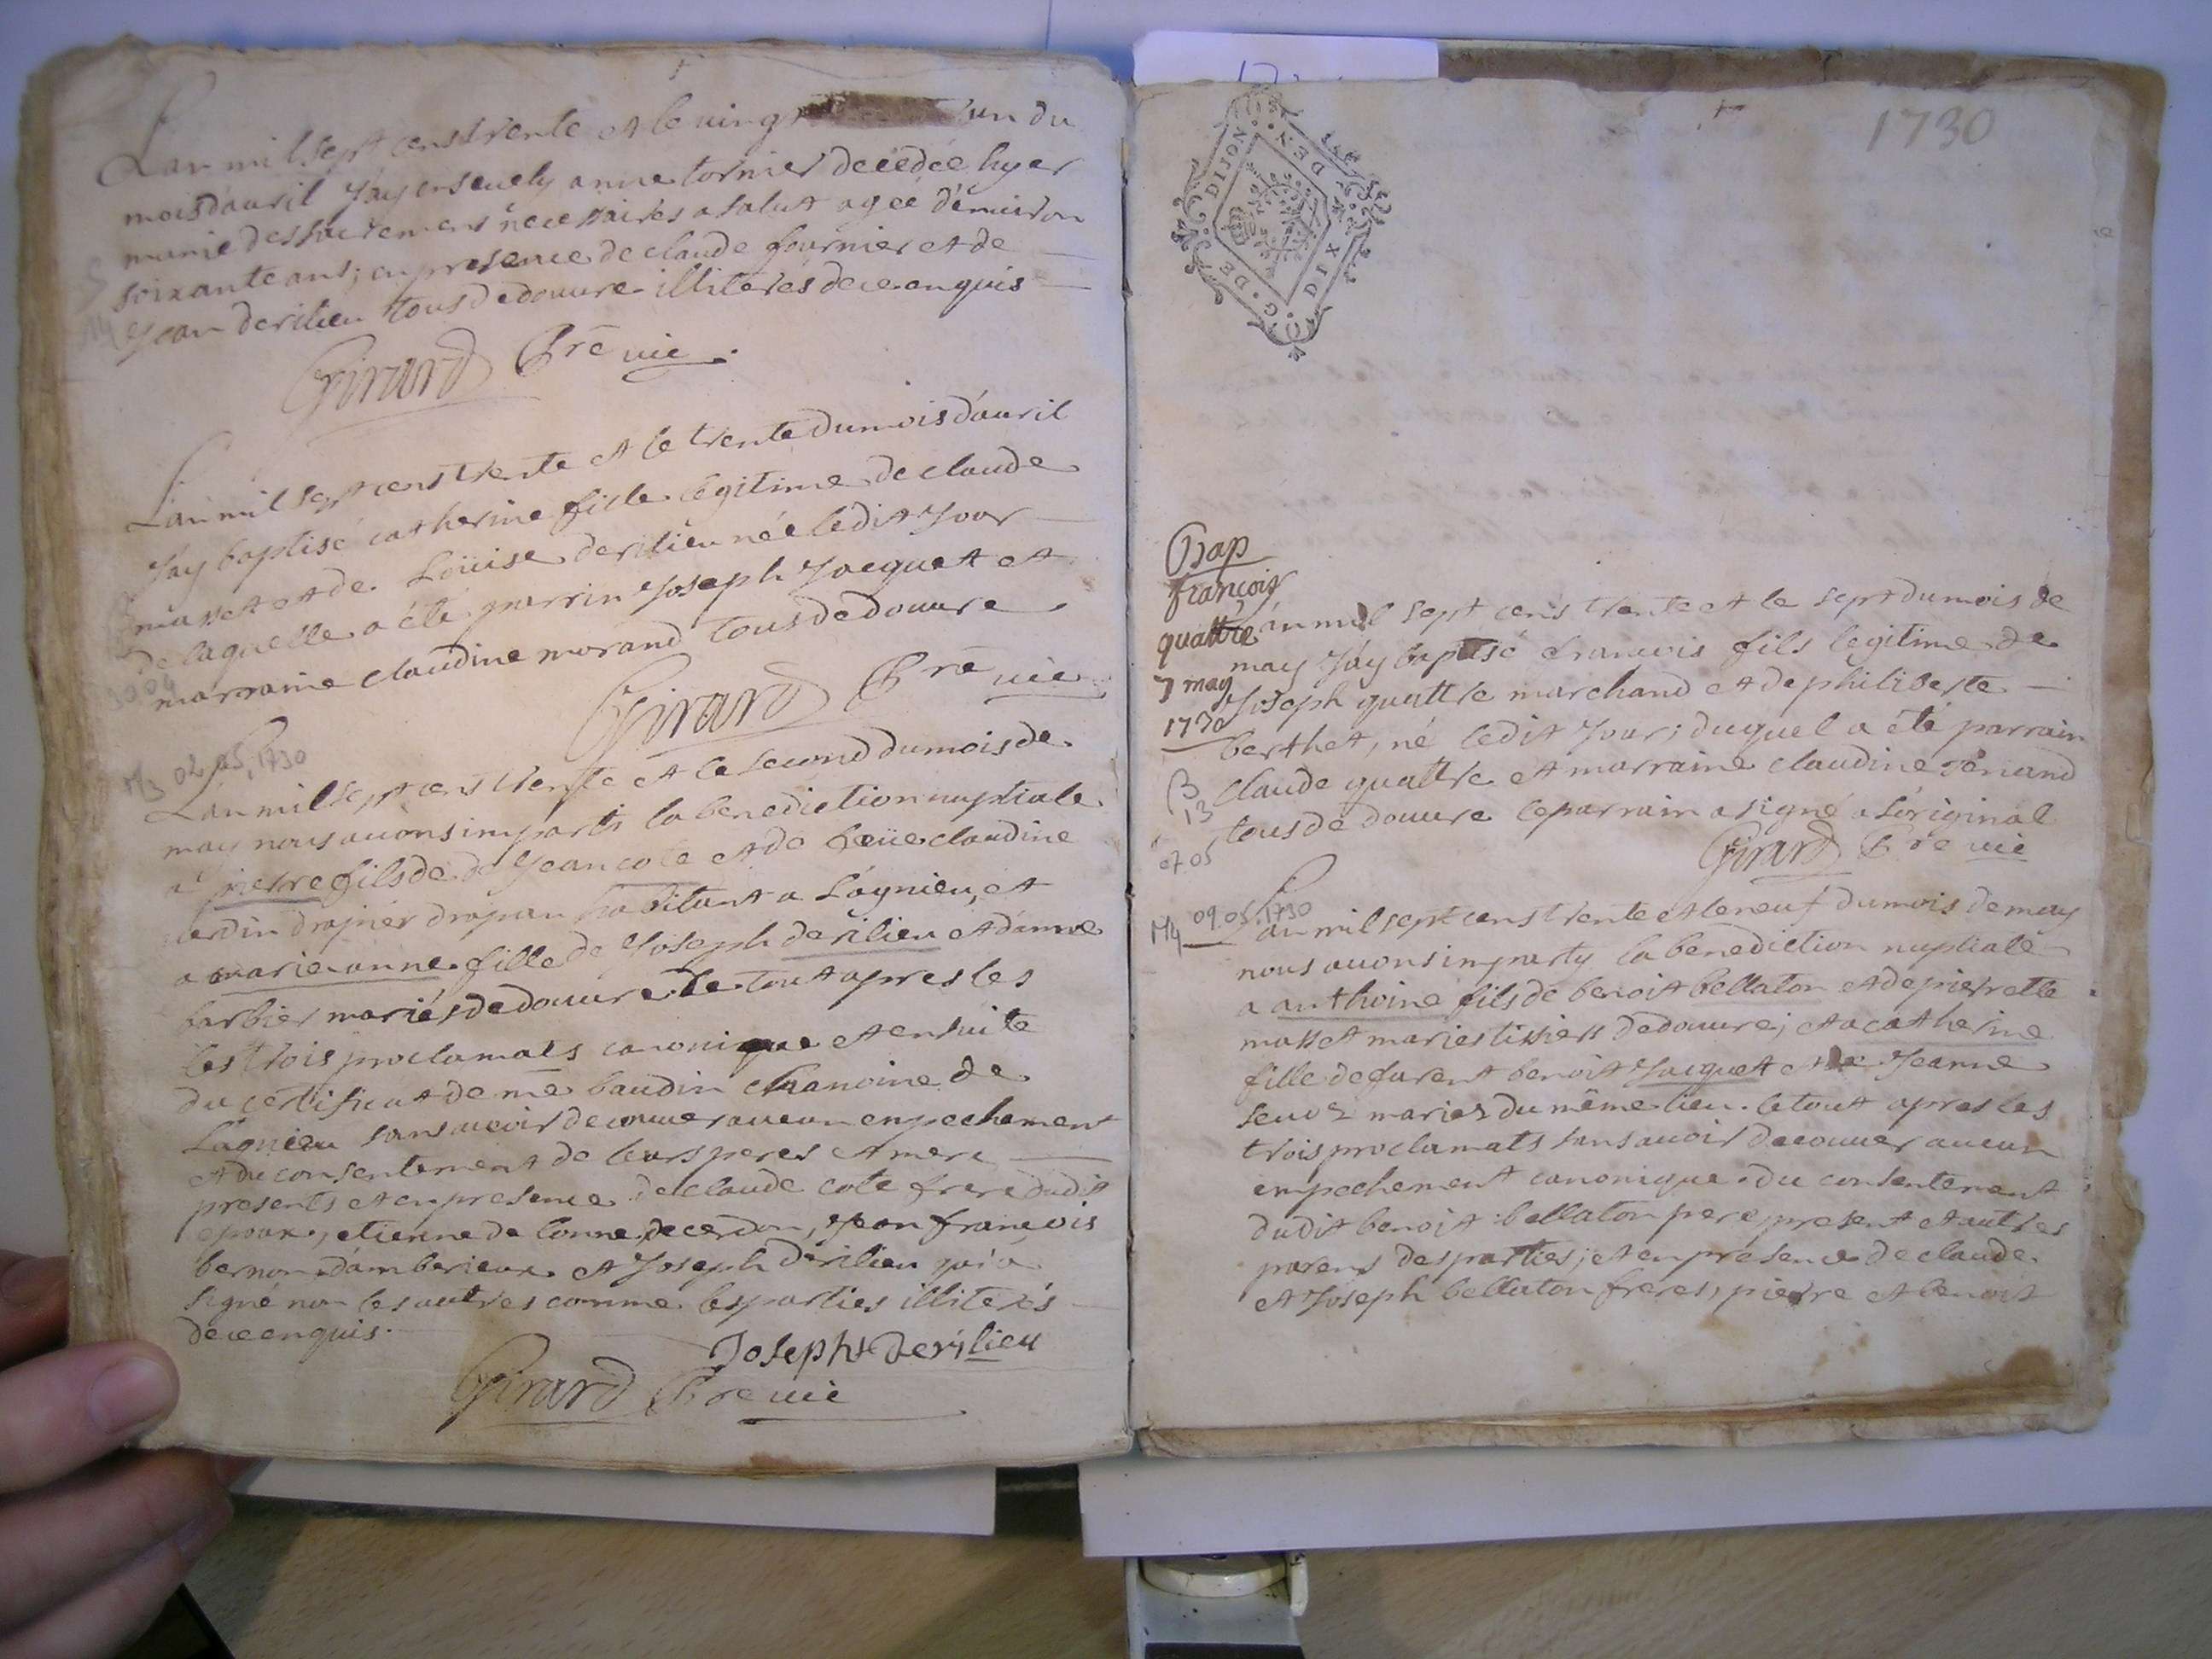 L'an mil sept cens trente et le vingt un du
mois d'auril j'ay enseuely anne tornier decedée hyer
munie des sacremens necessaires a salut agée d'enuiron
soixante ans; en presence de claude fournier et de
Jean derilieu tous de douure illiterés de ce enquis
Girard Pre vic.
L'an mil sept cens trente et le trente du mois d'auril
j'ay baptisé catherine fille legitime de claude
masset et de Loüise derilieu née ledit jour
de laquelle a été parrin Joseph Jacquet et
marraine claudine morand tous de douure
Girard Pre vic
M3 02.05.1730
L'an mil sept cens trente et le second du mois de
may nous auons imparti la benediction nuptiale
a pierre fils de de Jean cote et de feüe claudine
drapier drapan habitant a Lagnieu, et
a marie anne fille de Joseph derilieu et d'anne
barbier mariés de douure le tout apres les
les trois proclamats canonique et ensuite
du certificat de me baudin chanoine de
Lagnieu sans auoir decouuer aucun enpechement
et du consentement de leurs peres et mere
presents et en presence de claude cote frere dudit
epoux, etienne de lonne de cerdon, Jean françois
bernon d'amberieux et Joseph derilieu qui a
signé non les autres comme les parties illiterés
de ce enquis.
Joseph Derilieu
Girard Pre vic
1730
DIJON
G. DE DEN.
DIX
Bap
françois
quattre
7 may
1730
L'an mil sept cens trente et le sept du mois de
may j'ay baptisé francois fils legitime de
Joseph quattre marchand et de philiberte
berthet, né ledit jour; duquel a été parrain
claude quattre et marraine claudine renand
tous de douure le parrain a signé a l'original
Girard Pre vic
B
13
07.05
M4 09.05.1730
L'an mil sept cens trente et le neuf du mois de may
nous auons imparty la benediction nuptiale
a anthoine fils de benoit bellaton et de pierrette
masset maries tissiers de douure; et a catherine
fille de furent benoit Jacquet et de Jeanne
seuoz mariez du même lieu. le tout apres les
trois proclamats sans auoir decouuer aucun
empechement canonique. du consentement
dudit benoit bellaton pere present et autres
parens des parties; et en presence de claude
et Joseph bellaton freres, pierre et benoit